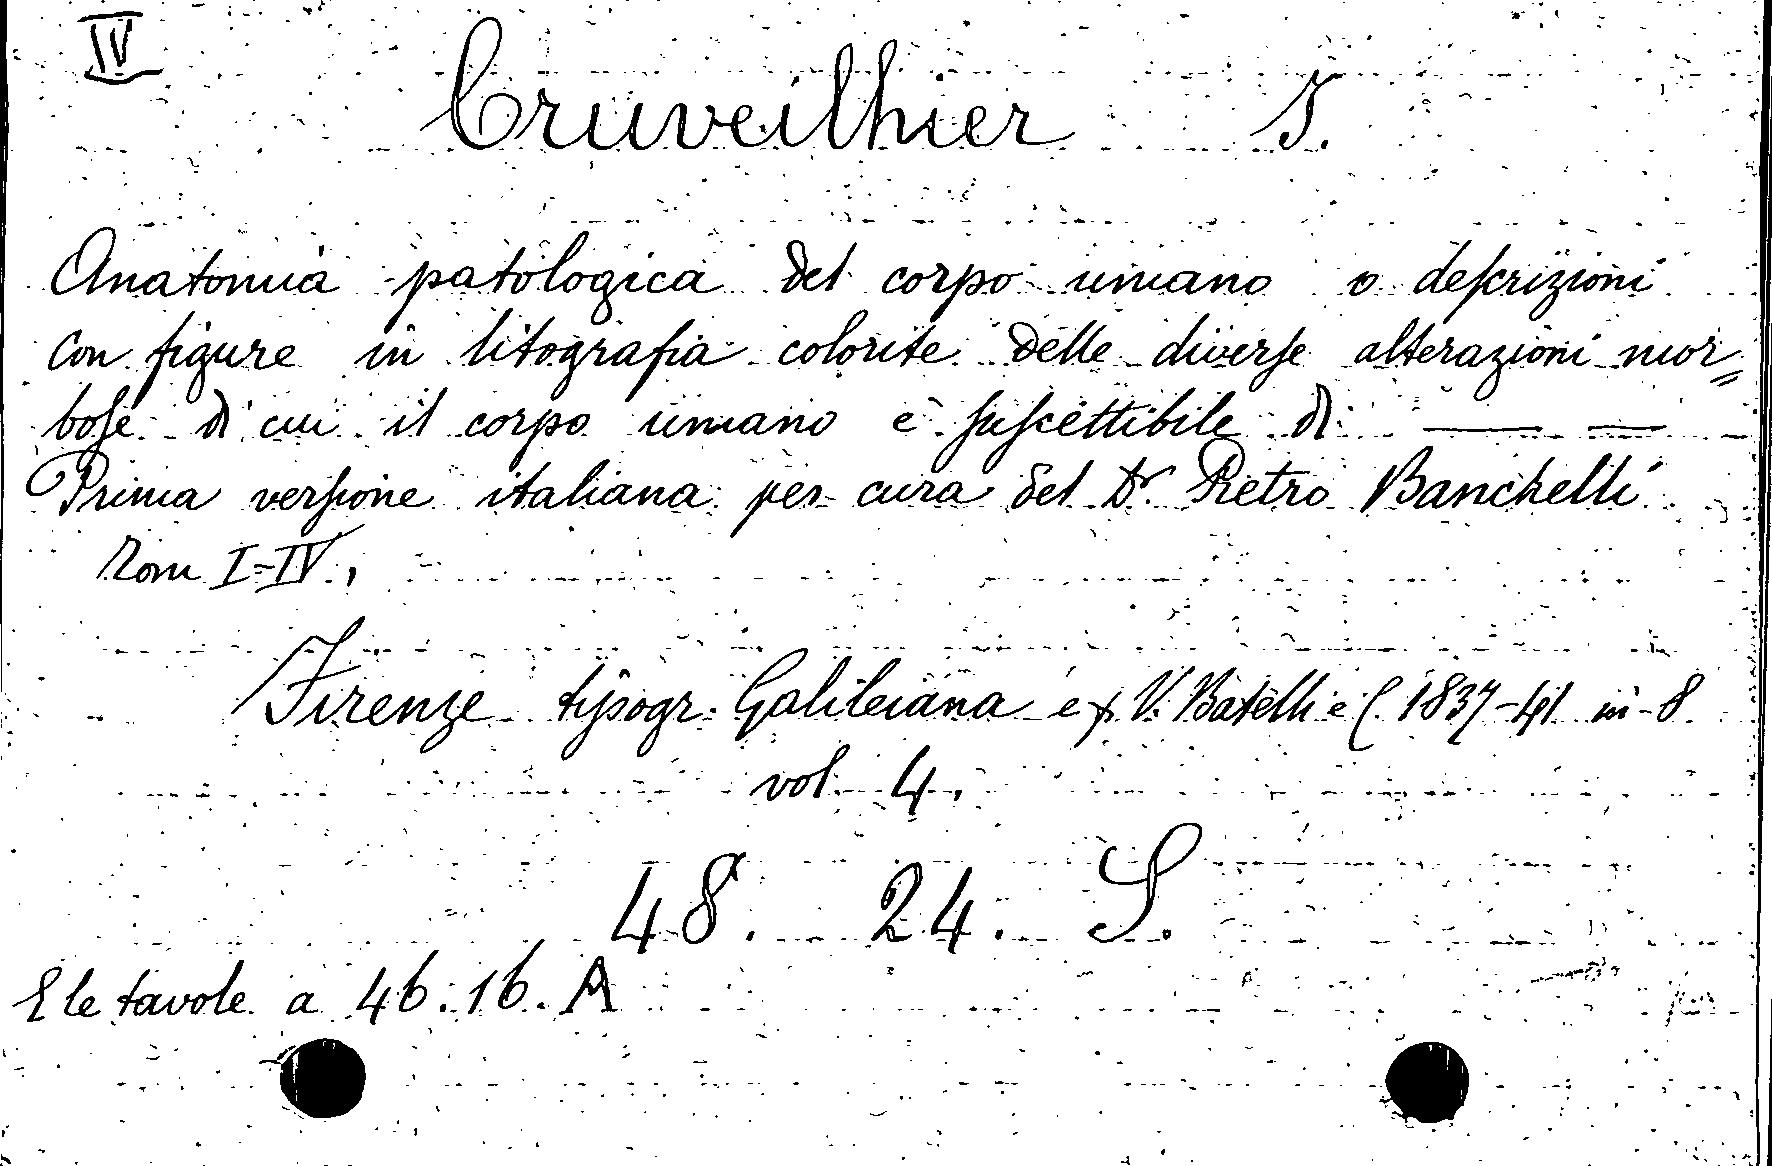 IV
Cruveilhier J.
Anatomia patologica del corpo umano o descrizioni
con figure in litografia colorite delle diverse alterazioni mor=
bose di cui il corpo umano è suscettibile di — —
Prima versione italiana per cura del Dr. Pietro Banchelli
Tom I-IV.,
Firenze tipogr. Galileiana e V. Batelli e C. 1837-41 in 8
vol. 4.
48. 24. S.
E le tavole a 46.16.A